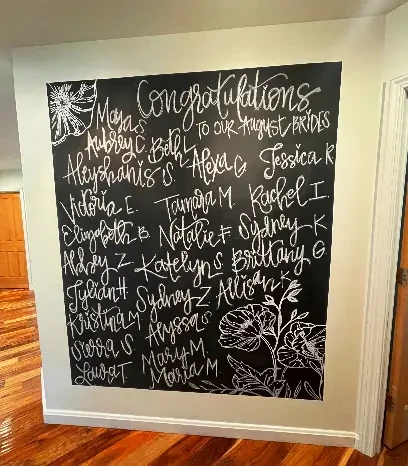 Congratulations
TO OUR AUGUST BRIDES
Maya S
Aubrey C. Beth L
Aleyshanis S Alexa G Jessica R
Victoria E. Tamara M. Rachel I.
Elizabeth B Natalie F Sydney K
Ainsley Z Katelyn S Brittany G.
Jylian H Sydney Z Allison K
Kristina M Alyssa S
Sierra S Mary M.
Laura T Maria M.